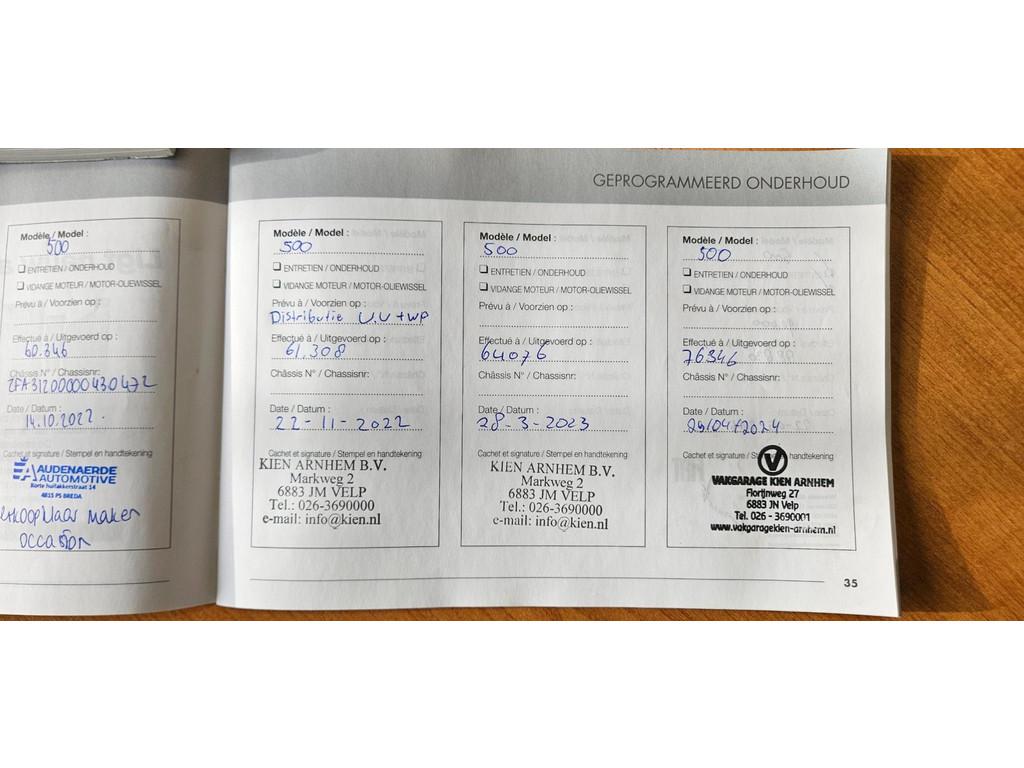 GEPROGRAMMEERD ONDERHOUD
Modèle / Model :
500
ENTRETIEN / ONDERHOUD
VIDANGE MOTEUR / MOTOR-OLIEWISSEL
Prévu à / Voorzien op :
Effectué à / Uitgevoerd op :
60.346
Châssis N° / Chassisnr:
ZFA31200000430472
Date / Datum :
14.10.2022.
Cachet et signature / Stempel en handtekening
EA AUDENAERDE
AUTOMOTIVE
Korte huifakkerstraat 14
4815 PS BREDA
maken
occasion
Modèle / Model :
500
ENTRETIEN / ONDERHOUD
VIDANGE MOTEUR / MOTOR-OLIEWISSEL
Prévu à / Voorzien op :
Distributie V.V + WP
Effectué à / Uitgevoerd op :
61.308
Châssis N° / Chassisnr:
Date / Datum :
22-11-2022
Cachet et signature / Stempel en handtekening
KIEN ARNHEM B.V.
Markweg 2
6883 JM VELP
Tel.: 026-3690000
e-mail: info@kien.nl
Modèle / Model :
500
ENTRETIEN / ONDERHOUD
VIDANGE MOTEUR / MOTOR-OLIEWISSEL
Prévu à / Voorzien op :
Effectué à / Uitgevoerd op :
64076
Châssis N° / Chassisnr:
Date / Datum :
28-3-2023
Cachet et signature / Stempel en handtekening
KIEN ARNHEM B.V.
Markweg 2
6883 JM VELP
Tel.: 026-3690000
e-mail: info@kien.nl
Modèle / Model :
500
ENTRETIEN / ONDERHOUD
VIDANGE MOTEUR / MOTOR-OLIEWISSEL
Prévu à / Voorzien op :
Effectué à / Uitgevoerd op :
76346
Châssis N° / Chassisnr:
Date / Datum :
29/04/2024
Cachet et signature / Stempel en handtekening
V
VAKGARAGE KIEN ARNHEM
Florijnweg 27
6883 JN Velp
Tel. 026 - 3690001
www.vakgaragekien-arnhem.nl
35